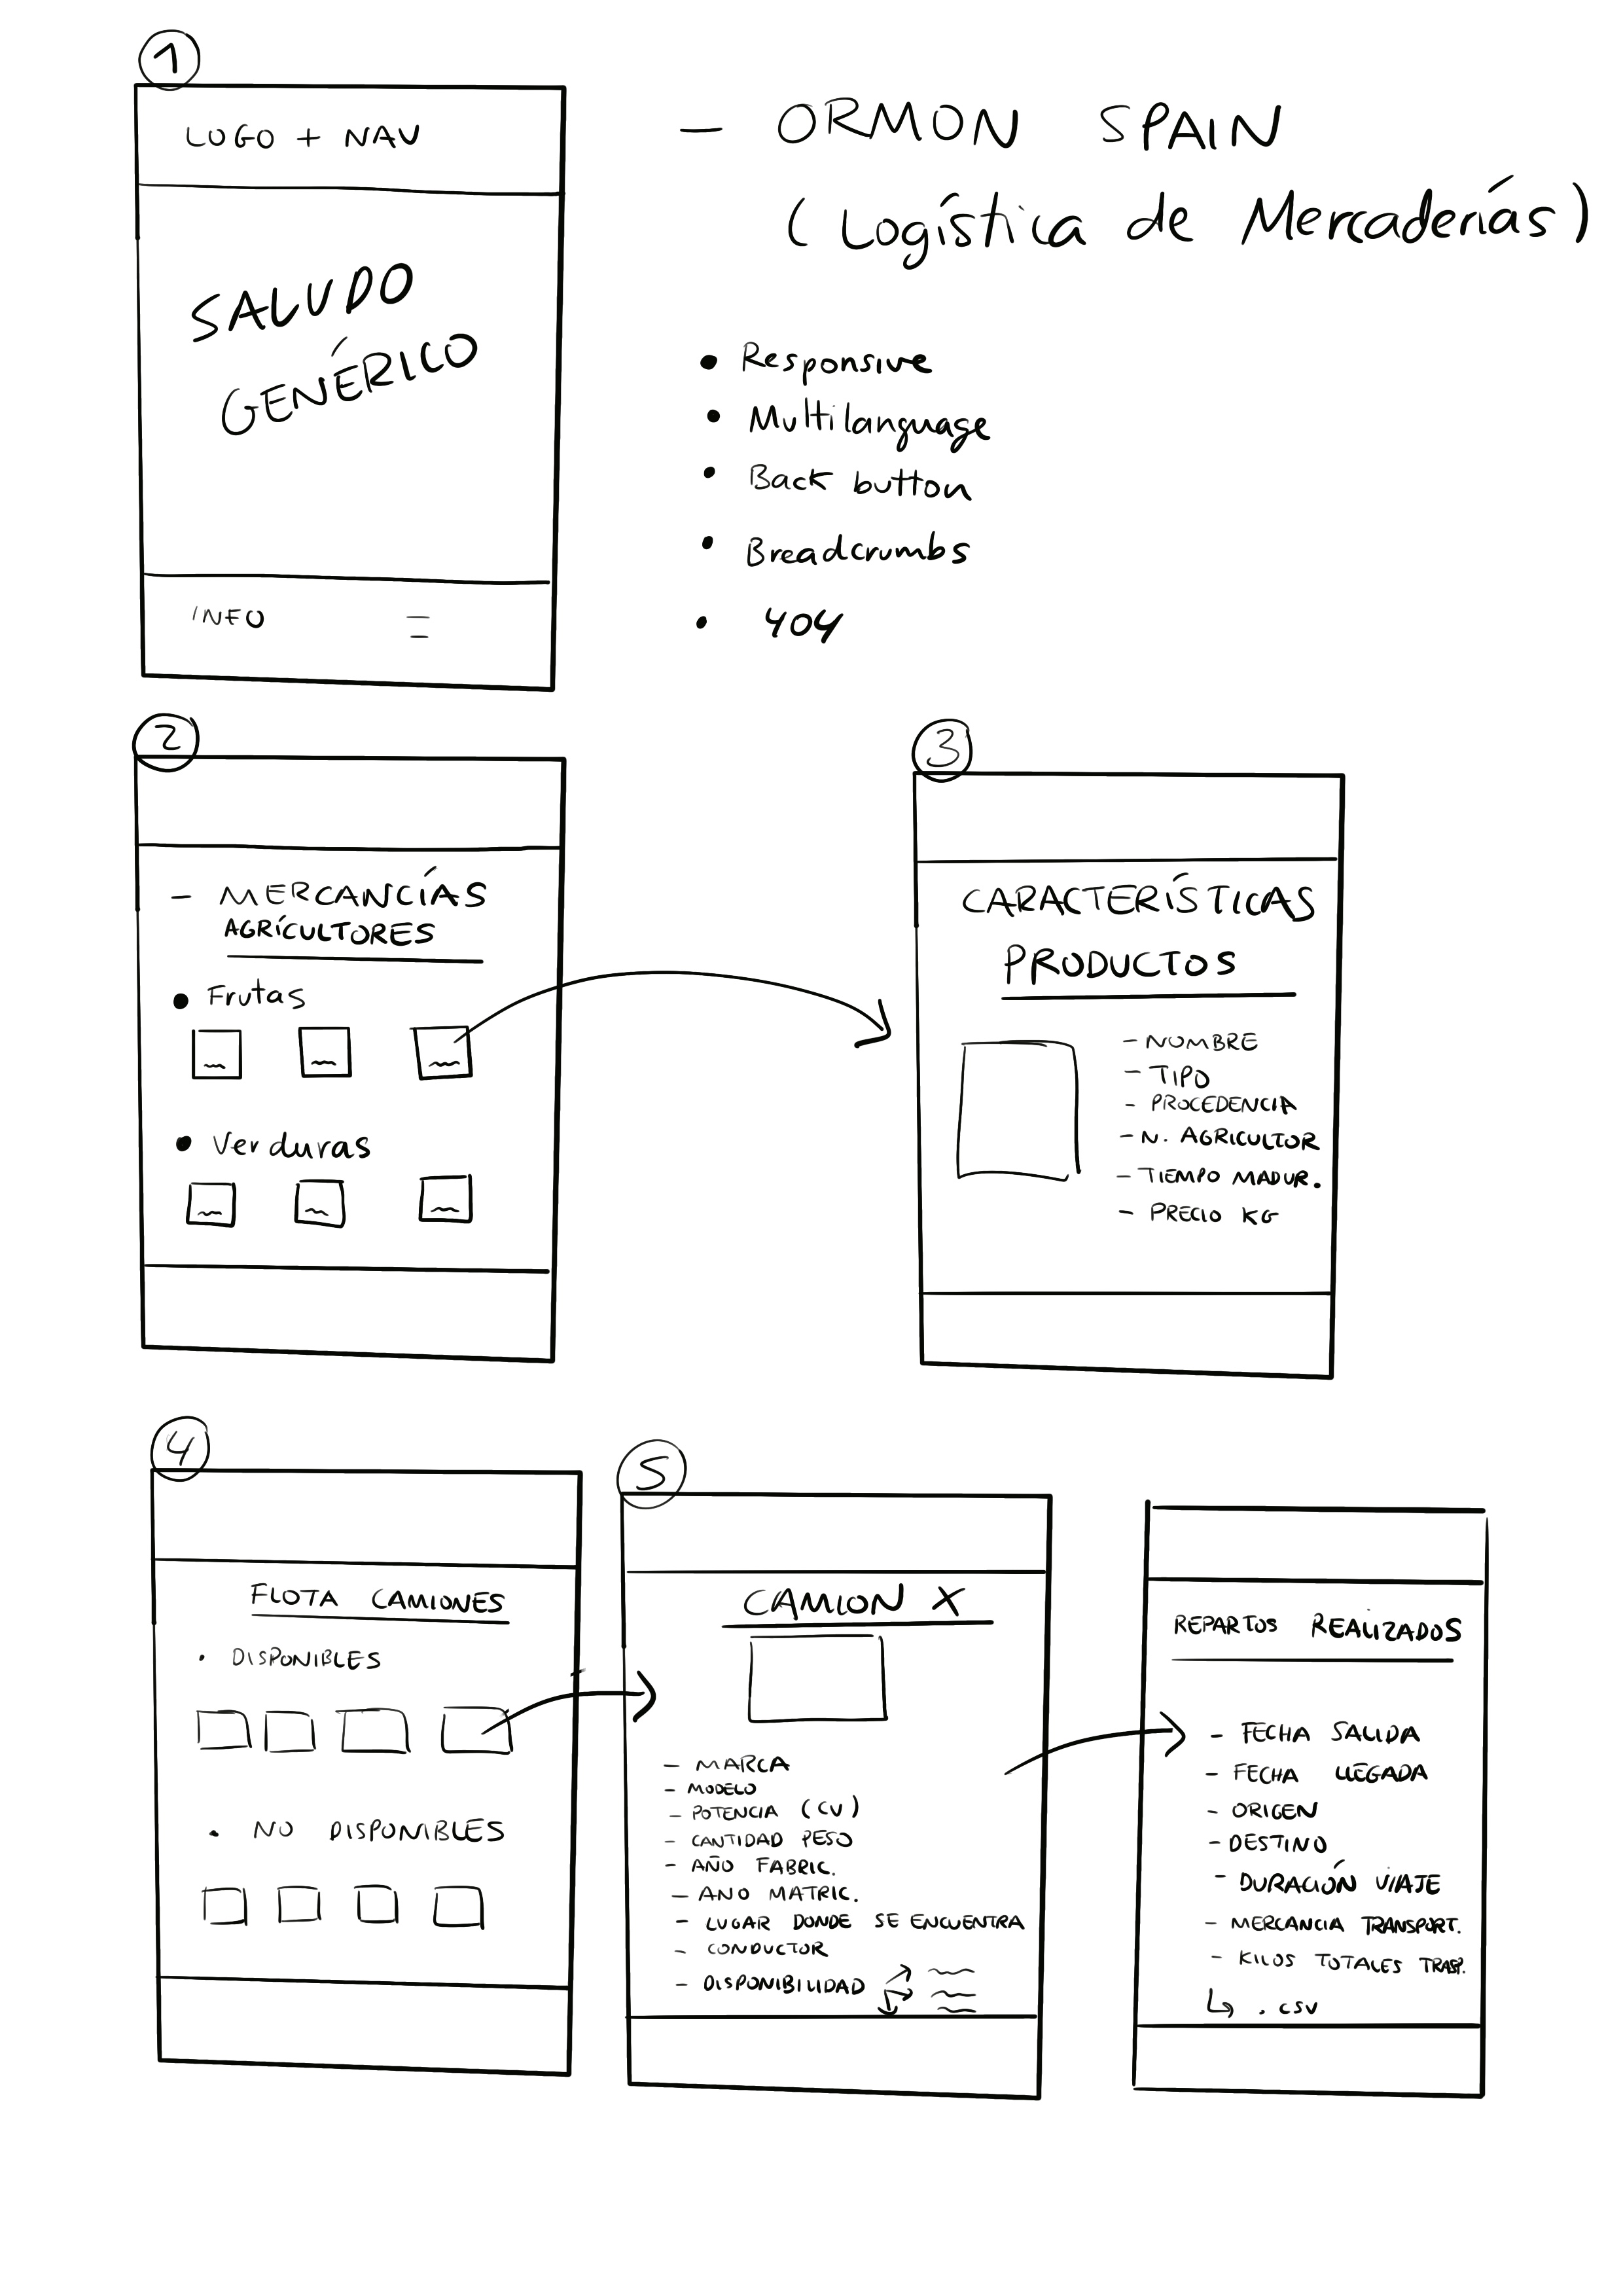 1
LOGO + NAV
SALUDO
GENÉRICO
INFO
- ORMON SPAIN
(Logística de Mercaderías)
• Responsive
• Multilanguage
• Back button
• Breadcrumbs
• 404
2
- MERCANCÍAS
AGRÍCULTORES
• Frutas
• Verduras
3
CARACTERÍSTICAS
PRODUCTOS
- NOMBRE
- TIPO
- PROCEDENCIA
- N. AGRICULTOR
- TIEMPO MADUR.
- PRECIO KG
4
FLOTA CAMIONES
• DISPONIBLES
• NO DISPONIBLES
5
CAMION X
- MARCA
- MODELO
- POTENCIA (CV)
- CANTIDAD PESO
- AÑO FABRIC.
- ANO MATRIC.
- LUGAR DONDE SE ENCUENTRA
- CONDUCTOR
- DISPONIBILIDAD
REPARTOS REALIZADOS
- FECHA SALIDA
- FECHA LLEGADA
- ORIGEN
- DESTINO
- DURACIÓN VIAJE
- MERCANCIA TRANSPORT.
- KILOS TOTALES TRASP.
↳ .csv